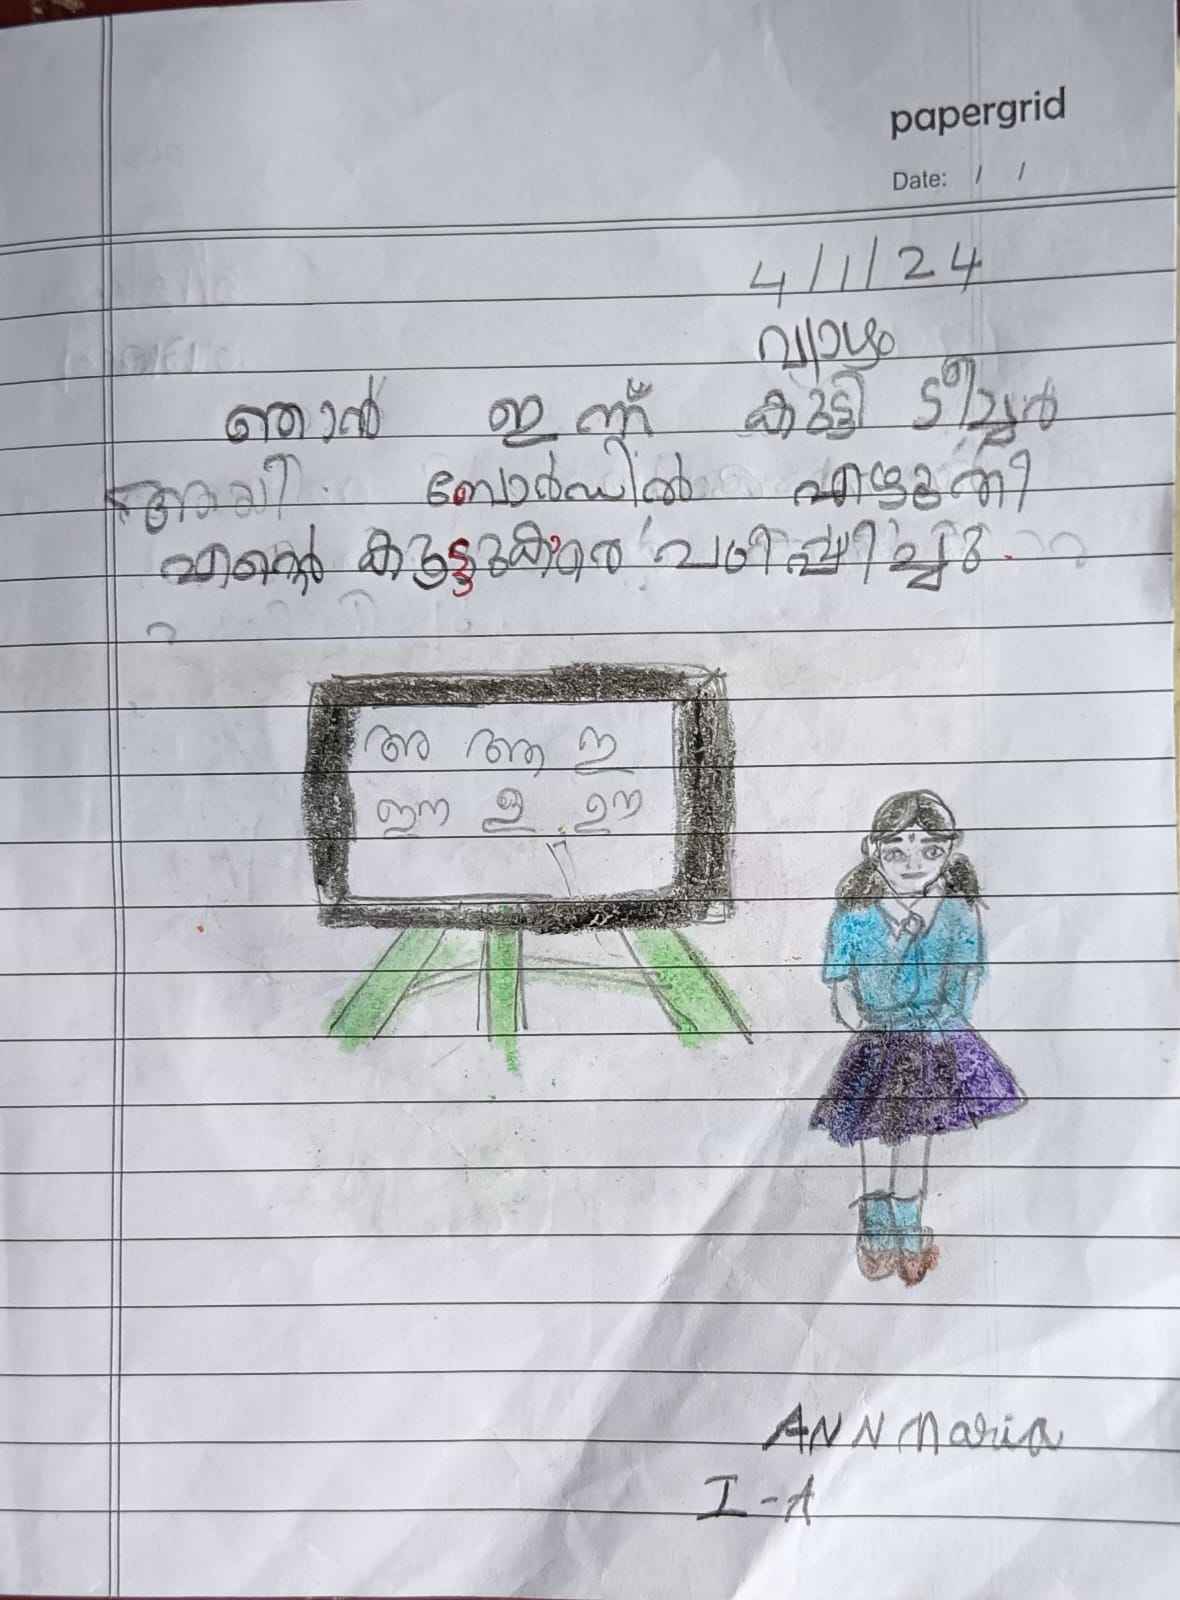 papergrid
Date: / /
4/1/24
വ്യാഴം
ഞാൻ ഇന്ന് കുട്ടി ടീച്ചർ
ആയി ബോർഡിൽ എഴുതി
എന്റെ കൂട്ടുകാരെ പഠിപ്പിച്ചു.
അ ആ ഇ
ഈ ഉ ഊ
ANN Maria
I-A